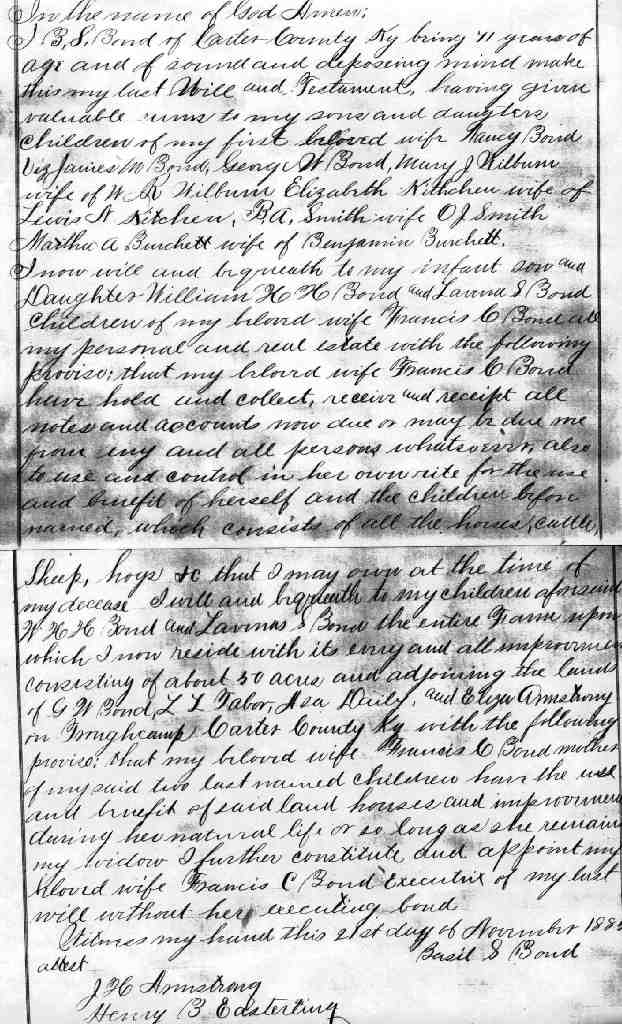 In the name of God Amen:
I B, S, Bond of Carter County Ky being 71 years of
age and of sound and disposing mind make
this my last Will and Testament, having given
valuable sums to my sons and daughters
children of my first beloved wife Nancy Bond
Viz James M Bond, George W Bond, Mary J Wilburn
wife of W R Wilburn Elizabeth Kithchen wife of
Lewis N Kitchen, B.A, Smith wife O J Smith
Martha A Burchett wife of Benjamin Burchett.
I now will and bequeath to my infant son and
Daughter William H H Bond and Lavina S Bond
children of my beloved wife Francis C Bond all
my personal and real estate with the following
proviso; that my beloved wife Francis C Bond
have hold and collect, receive and receipt all
notes and accounts now due or may be due me
from any and all persons whatsoever, also
to use and control in her own rite for the use
and benefit of herself and the children before
named, which consists of all the horses, cattle,
Sheep, hogs &c that I may own at the time of
my decease I will and bequeath to my children aforesaid
W H H Bond and Lavinas S Bond the entire Farme upon
which I now reside with its every and all improvmen
consisting of about 50 acres and adjoining the lands
of G W Bond, L L Tabor, Asa Daily, and Eliza Armstrong
on Troughcamp Carter County Ky with the following
provise; that my beloved wife Francis C Bond mother
of my said two last named children have the use
and benefit of said land houses and improvmen
during her natural life or so long as she remain
my widow I further constitute and appoint my
beloved wife Francis C Bond Executrix of my last
will without her executing bond
Witness my hand this 21st day of November 188
Basil S Bond
attest
J H Armstrong
Henry B Easterling